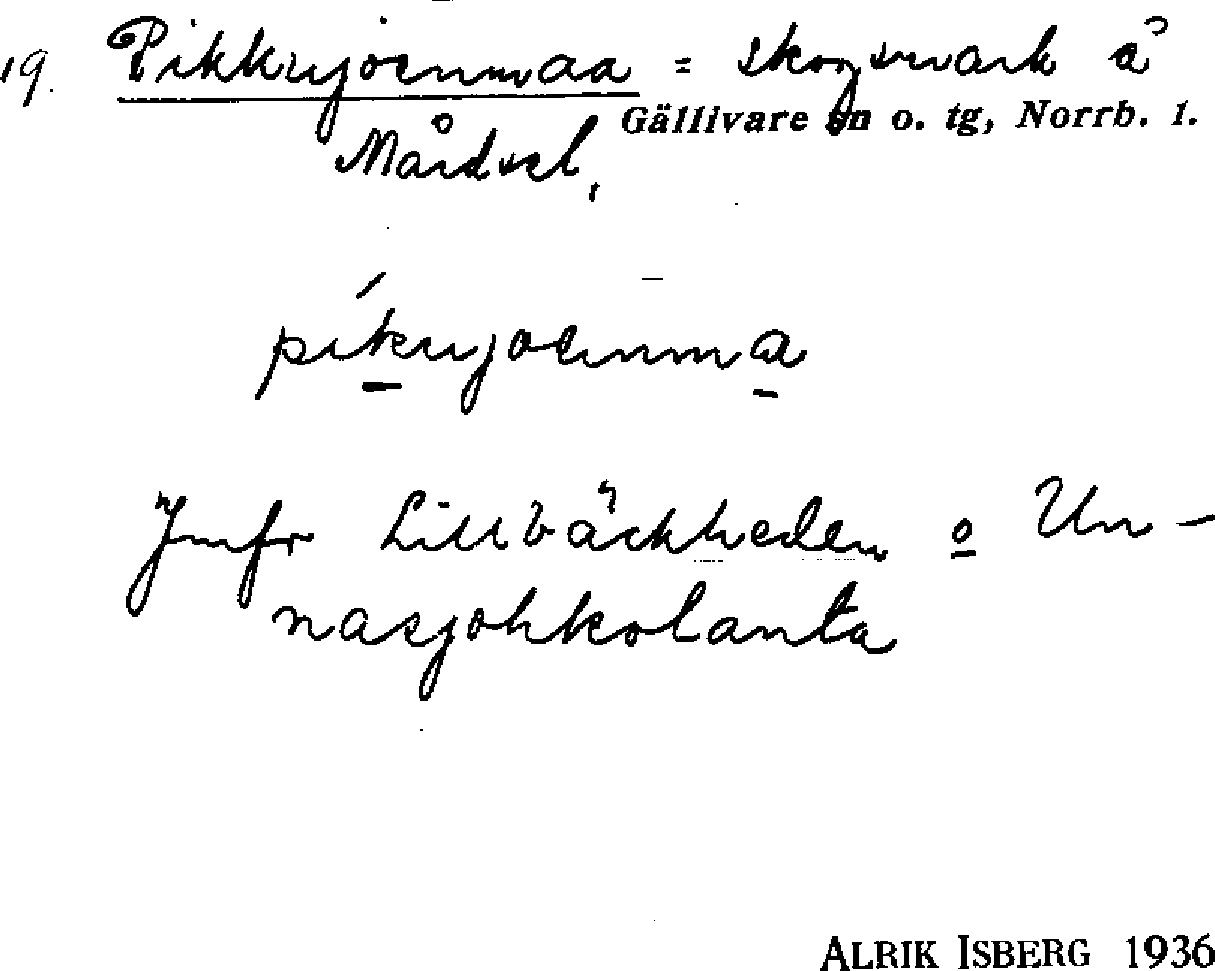 19. Pikkujoenmaa = skogsmark å
Gällivare sn o. tg, Norrb. l.
Mårdsel,
píkujoenma
Jmfr Lillbäckheden o Un-
nasjohkolanta
ALRIK ISBERG 1936